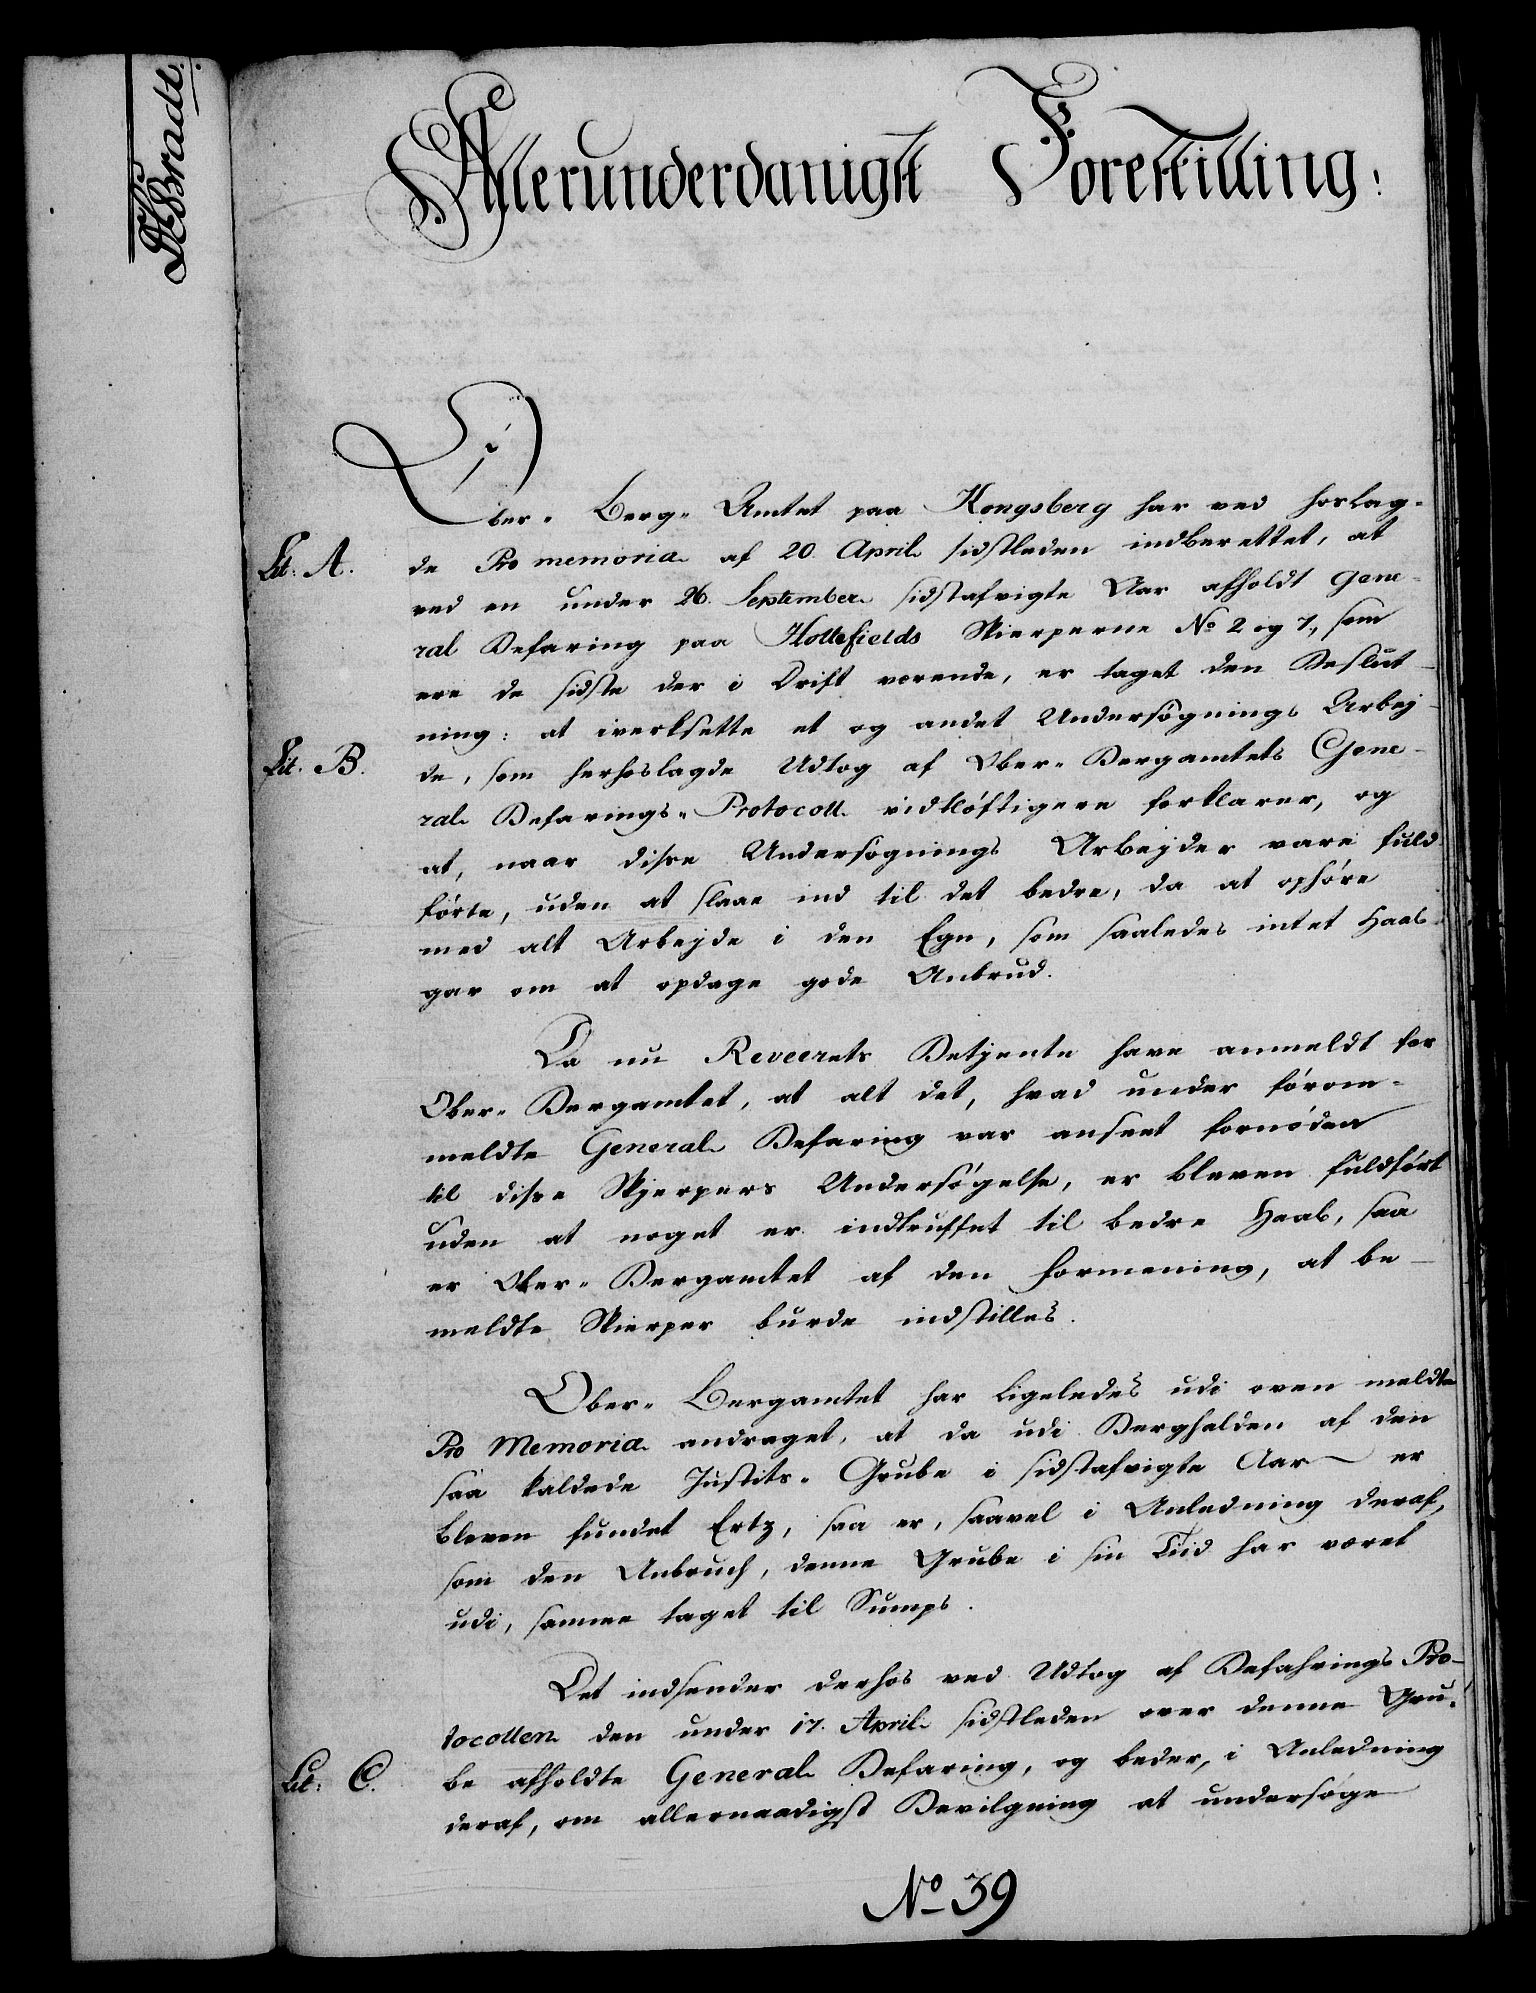 Bradt.
Allerunderdanigst Forestilling:
Ober- Berg- Amtet paa Kongsberg har ved hoslag-
Lit. A. de Pro memoria af 20. April sidstleden indberettet, at
ved en under 26. September sidstafvigte Aar afholdt Gene-
ral Befaring paa Hollefields Skierperne No 2 og 7, som
ere de sidste der i Drift værende, er taget den Beslut-
ning: at iverksette et og andet Undersøgnings Arbej-
Lit. B. de, som herhoslagde Udtog af Ober- Bergamtets Gene-
ral Befarings- Protocoll vidtløftigere forklarer, og
at, naar disse Undersøgnings Arbejder vare fuld
førte, uden at slaae ind til det bedre, da at ophøre
med alt Arbejde i den Egn, som saaledes intet Haab
gav om at opdage gode Anbrud.
Da nu Reveerets Betjente have anmeldt for
Ober- Bergamtet, at alt det, hvad under førom-
meldte General Befaring var anseet fornøden
til disse Skjerpers Undersøgelse, er bleven fuldført
uden at noget er indtruffet til bedre Haab, saa
er Ober- Bergamtet af den Formening, at be-
meldte Skierper burde indstilles.
Ober- Bergamtet har ligeledes udi oven meldte
Pro Memoria andraget, at da udi Berghalden af den
saa kaldede Justits- Grube i sidstafvigte Aar er
bleven fundet Ertz, saa er, saavel i Anledning deraf,
som den Anbruch, denne Grube i sin Tiid har været
udi, samme taget til Sumps.
Det indsender derhos ved Udtog af Befahrings Pro-
tocollen den under 17. April sidstleden over denne Gru-
Lit: C. be afholdte General Befaring, og beder, i Anledning
deraf, om allernaadigst Bevilgning at undersøge
No 39